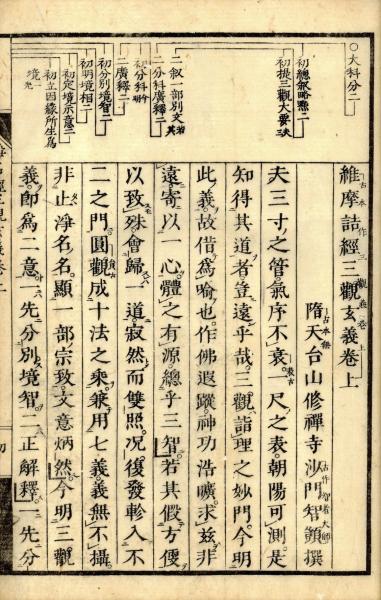 ○大科分二
初總叙略懸二
初提三觀大要
二叙一部別文
初分科
二分科廣釋二
二廣釋二
初分別境智二
初明境相二
初定境示意二
初立因緣所生爲
境
維摩詰經三觀玄義卷上
隋天台山修禪寺沙門智顗撰
夫三寸之管氣序不衰一尺之表朝陽可測是
知得其道者豈遠乎哉三觀詣理之妙門今明
此義故借爲喻也作佛遐蹤神功浩曠求茲非
遠寄以一心體之有源總乎三智若其假方便
以致殊會歸一道寂然而雙照况復發軫入不
二之門圓觀成十法之乘兼用七義義無不攝
非止淨名名顯一部宗致文意炳然今明三觀
義即爲二意一先分別境智二正解釋一先分